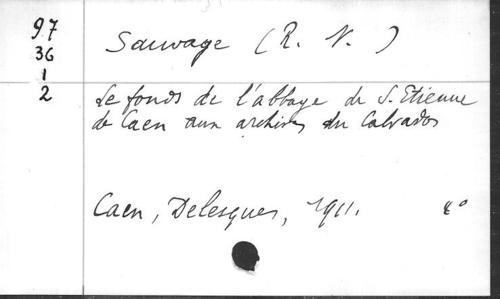 97
36
1
2
Sauvage (R. N.)
Le fonds de l'abbaye de S. Etienne
de Caen aux archives du Calvados
Caen, Delesques, 1911. 8°